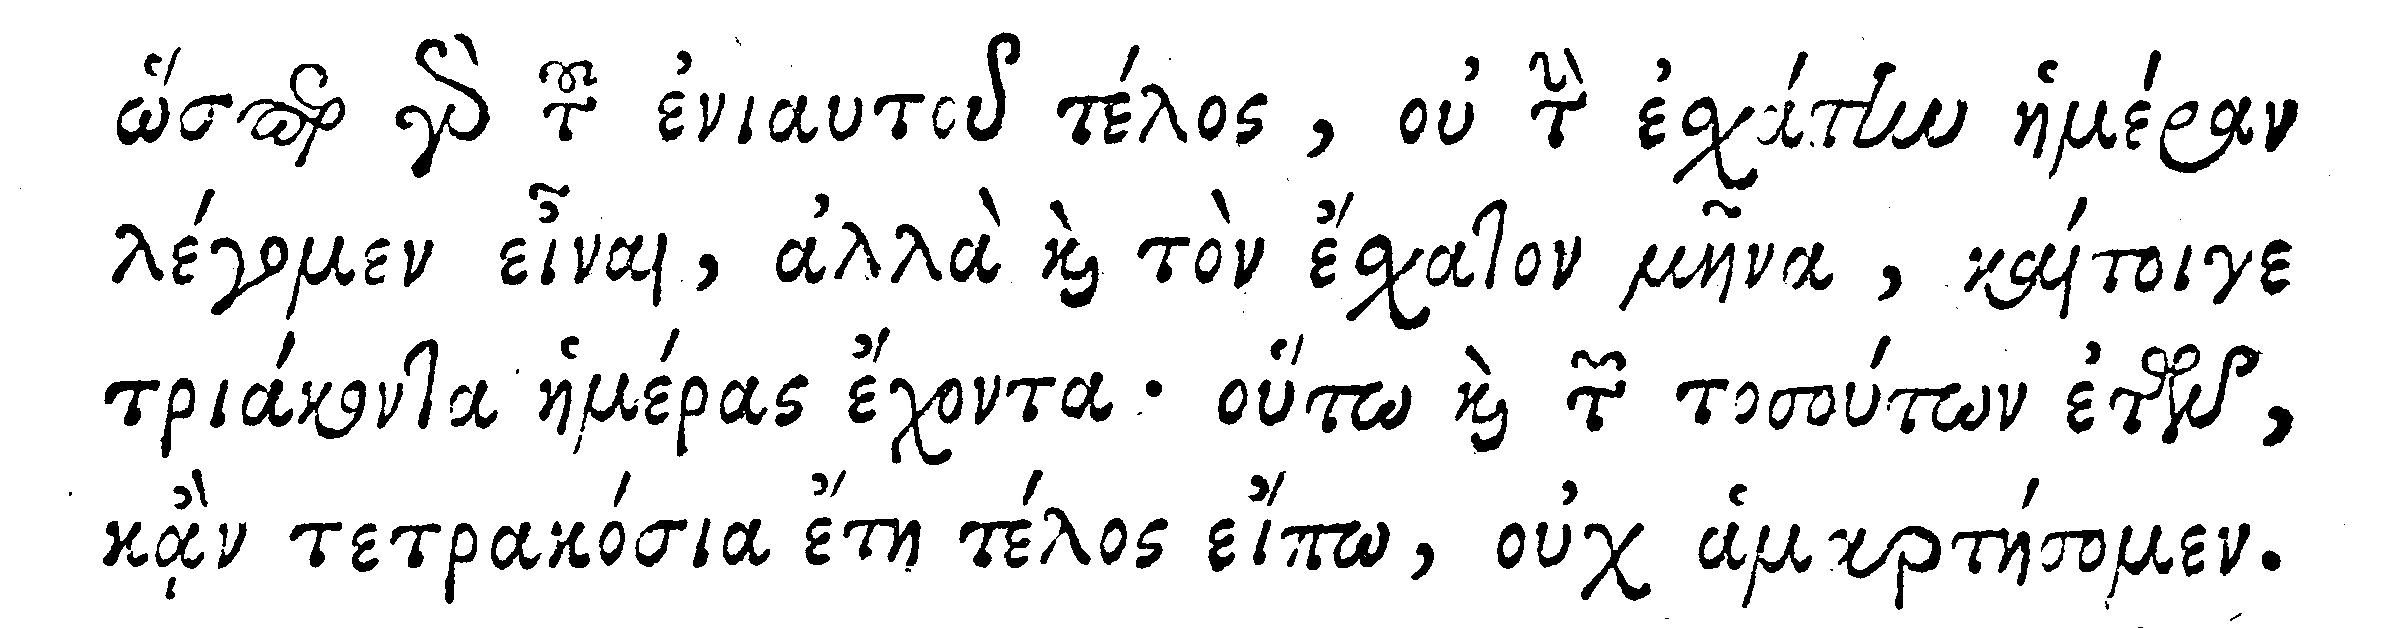 ὥσπερ γὰρ τοῦ ἐνιαυτοῦ τέλος, οὐ τὴν ἐσχάτην ἡμέραν
λέγομεν εἶναι, ἀλλὰ καὶ τὸν ἔσχατον μῆνα, καίτοιγε
τριάκοντα ἡμέρας ἔχοντα· οὕτω καὶ τῶν τοσούτων ἐτῶν,
κᾂν τετρακόσια ἔτη τέλος εἴπω, οὐχ ἁμαρτήσομεν.